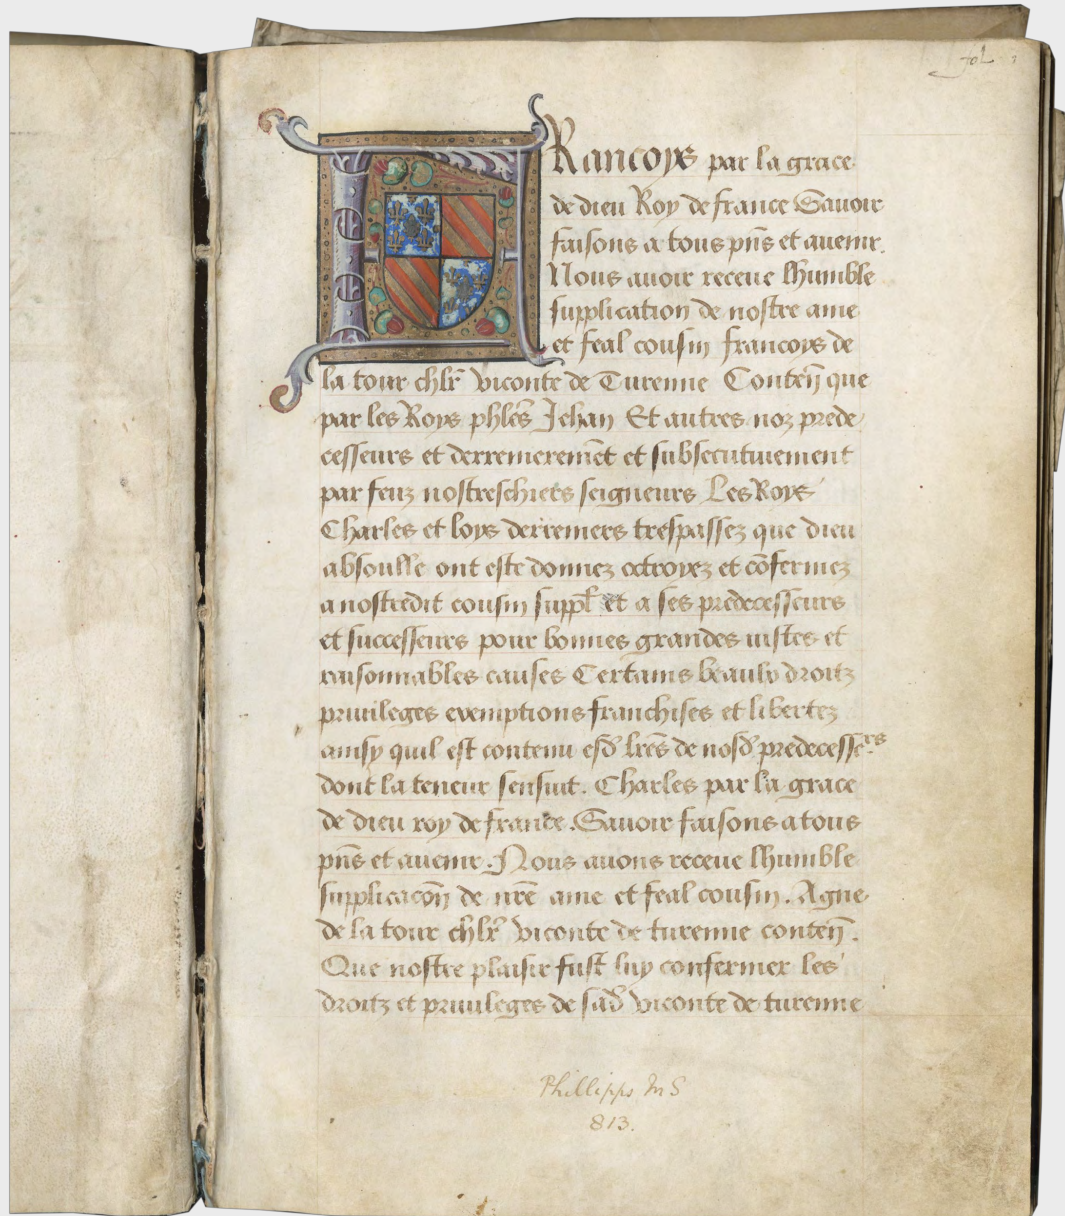 fol 1
FRancoys par la grace
de dieu Roy de france Sauoir
faisons a tous pñs et auenir.
Nous auoir receue lhumble
supplication de nostre ame
et feal cousin francoys de
la tour chlr̃ viconte de Turenne Conteñ que
par les Roys phles̃ Jehan Et autres noz prede
cesseurs et derrenieremẽt et subsecutiuement
par feuz nostreschiers seigneurs Les Roys
Charles et loys derreniers trespassez que dieu
absoulle ont este donnez octroyez et cõfermez
a nostredit cousin suppl̃ et a ses predecesseurs
et successeurs pour bonnes grandes iustes et
raisonnables causes Certains beaulx droitz
priuileges exemptions franchises et libertez
ainsy quil est contenu esd̃ lr̃es de nosd̃ predecessers
dont la teneur sensuit. Charles par la grace
de dieu roy de france. Sauoir faisons a tous
pñs et auenir. Nous auons receue lhumble
supplicacõn de nr̃e ame et feal cousin. Agne
de la tour chlr̃ viconte de turenne conteñ.
Que nostre plaisir fust luy confermer les
droitz et priuileges de sad̃ viconte de turenne
Phillipps MS
813.